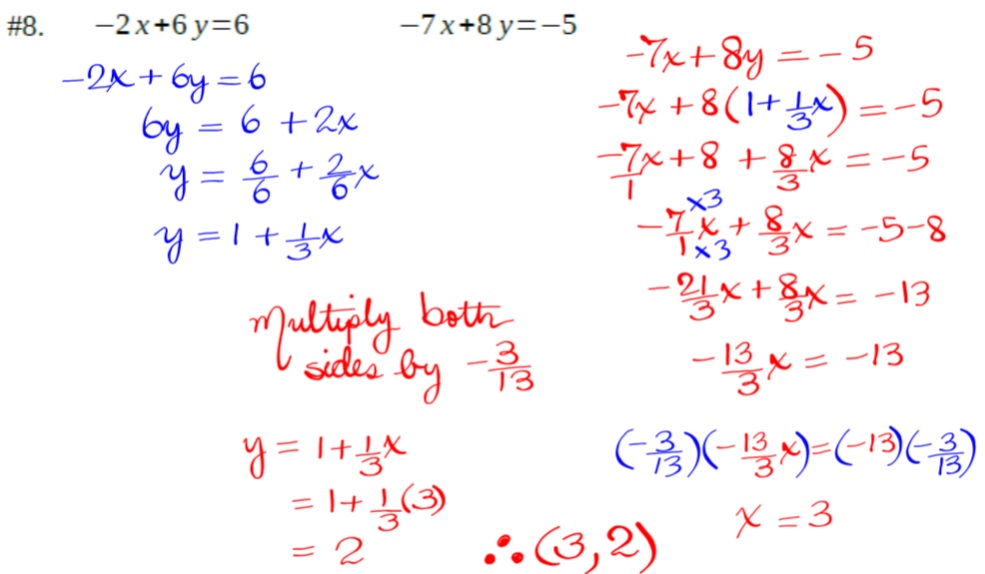 #8. −2x+6y=6 −7x+8y=−5
−2x + 6y = 6
6y = 6 + 2x
y = 6/6 + 2/6 x
y = 1 + 1/3 x
−7x + 8y = −5
−7x + 8(1 + 1/3 x) = −5
−7/1 x + 8 + 8/3 x = −5
×3
−7/1 x + 8/3 x = −5−8
×3
−21/3 x + 8/3 x = −13
−13/3 x = −13
Multiply both
sides by −3/13
(−3/13)(−13/3 x) = (−13)(−3/13)
x = 3
y = 1 + 1/3 x
= 1 + 1/3 (3)
= 2
∴ (3, 2)